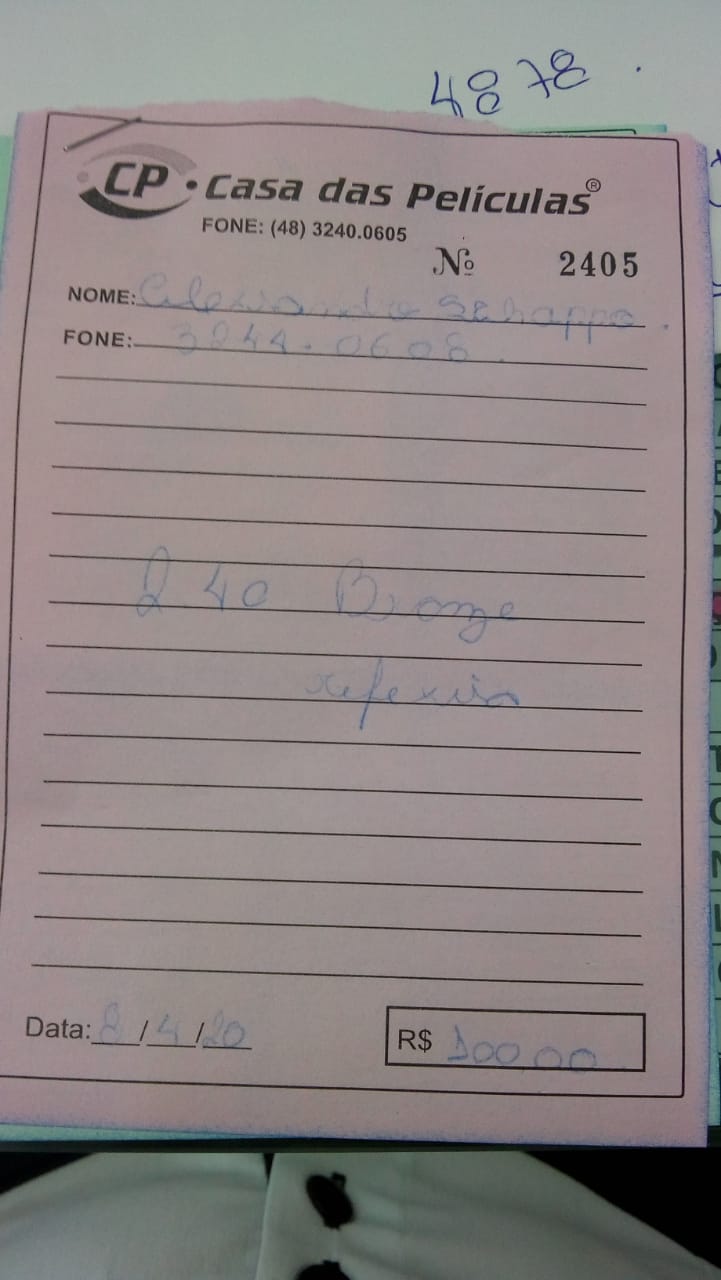 4878
CP • Casa das Películas®
FONE: (48) 3240.0605
Nº 2405
NOME: Alexsandro Schappo.
FONE: 3244.0608.
2.40 Bronze
refexivo
Data: 8/4/20
R$ 100,00